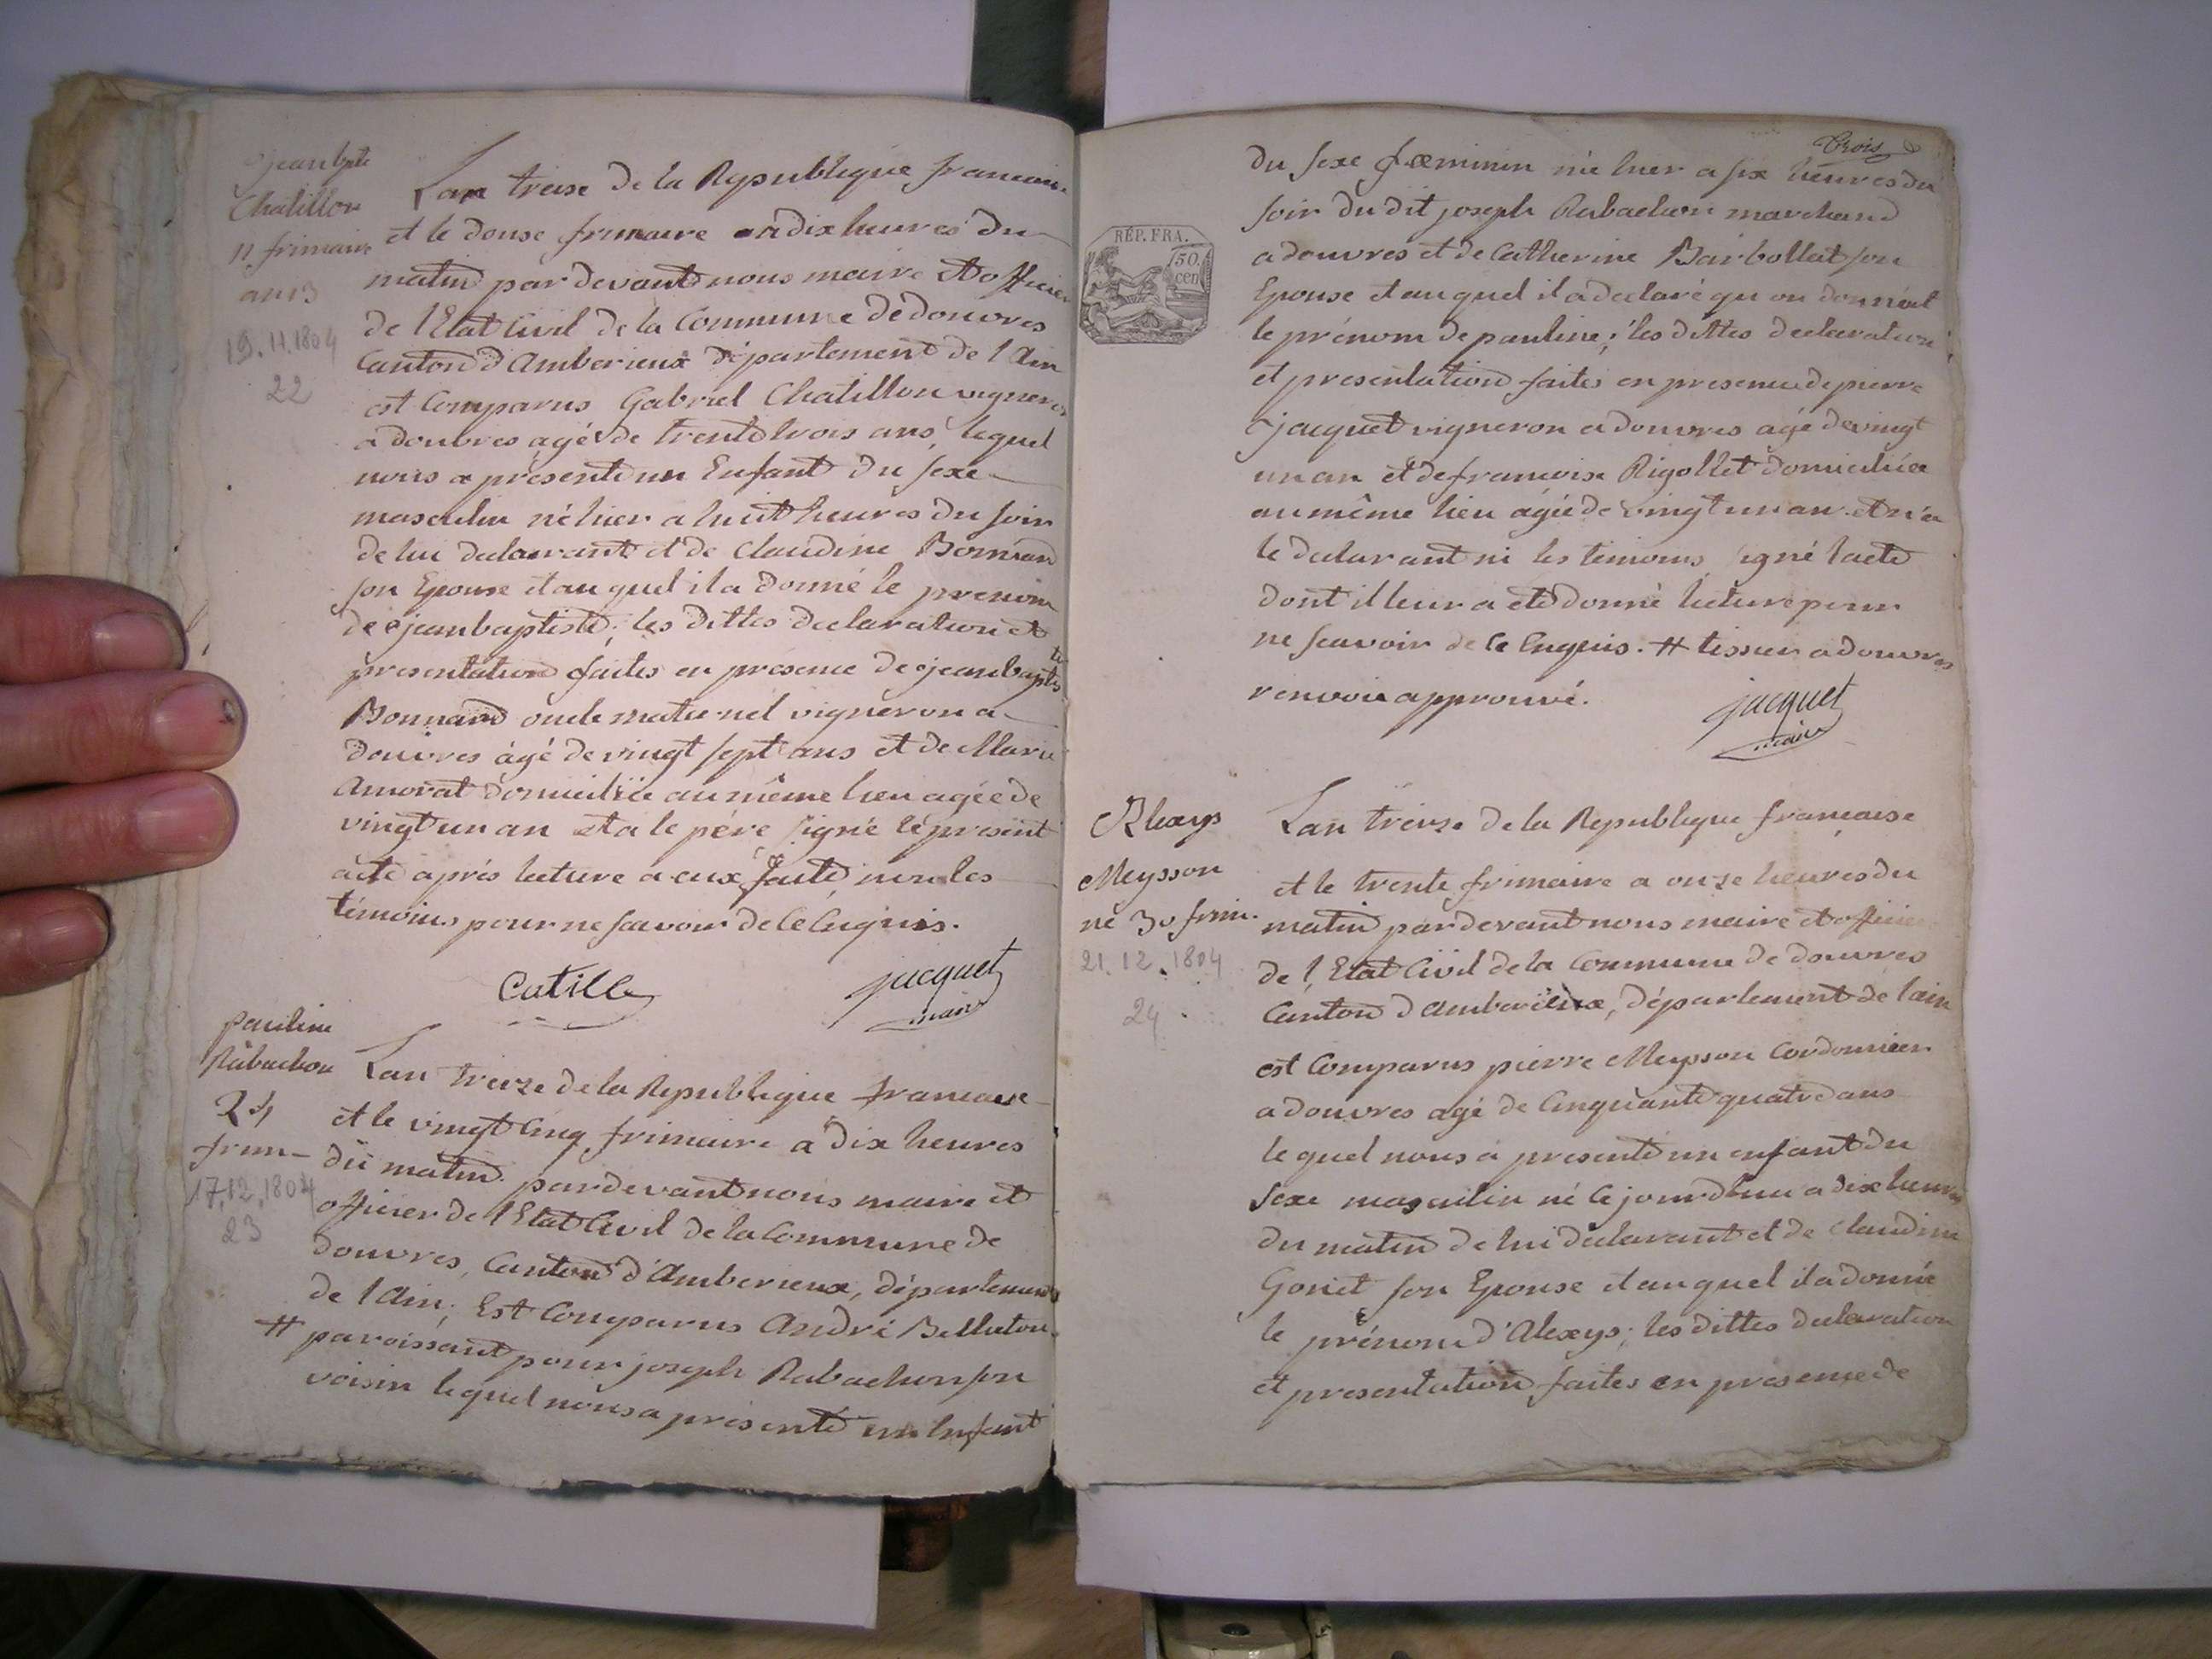 jean bpte
Chatillon
11 frimaire
an 13
19.11.1804
22
Lan treise de la Republique francaise
et le douse frimaire a dix heures du
matin par devant nous maire et officier
de l'Etat Civil de la Commune de douvres
Canton d'Amberieux département de l'Ain
est Comparus Gabriel Chatillon vigneron
a douvres agé de trente trois ans, lequel
nous a présenté un Enfant du sexe
masculin né hier a huit heures du soir
de lui declarant et de Claudine Bonnard
son Epouse et au quel il a donné le prenom
de jean baptiste; les dittes declaration et
presentation faites en presence de jean baptiste
Bonnard oncle maternel vigneron a
douvres âgé de vingt sept ans et de Marie
Amorat domiciliée au même lieu agée de
vingt un an et a le pére signé le present
acte aprés lecture a eux faite non les
témoins pour ne scavoir de ce Enquis.
Catille
jacquet
maire
pauline
Rabachon
24
frim-
17.12.1804
23
Lan treize de la Republique francaise
et le vingt Cinq frimaire a dix heures
du matin pardevant nous maire et
officier de l'Etat Civil de la Commune de
douvres, Canton d'Amberieux, département
de l'Ain; Est Comparus André Belluton
# paroissant pour joseph Rabachon son
voisin lequel nous a présenté un Enfant
trois
du sexe foeminin née hier a six heures du
soir du dit joseph Rabachon marchand
a douvres et de Catherine Barbollat son
Epouse et au quel il a declaré qu on donnéat
le prénom de pauline; les dittes declaration
et presentation faites en presence de pierre
jacquet vigneron a douvres agé de vingt
un an et de francoise Rigollet domiciliée
au même lieu agée de vingt un an. et n'a
le declarant ni les temoins signé l'acte
dont il leur a eté donné lecture pour
ne scavoir de ce Enquis. # tissier a douvres
renvoie approuvé.
jacquet
maire
RÉP. FRA.
50
cen
Alexys
Meysson
né 30 frim.
21.12.1804
24
Lan treize de la Republique francaise
et le trente frimaire a onze heures du
matin pardevant nous maire et officier
de l'Etat Civil de la Commune de douvres
Canton d'Amberieux, département de l'ain
est Comparus pierre Meysson Cordonnier
a douvres agé de Cinquante quatre ans
le quel nous a presenté un enfant du
sexe masculin né ce jourdhui a dix heures
du matin de lui declarant et de Claudine
Gonet son Epouse et au quel il a donné
le prénom d'Alexys; les dittes declaration
et presentation faites en présence de